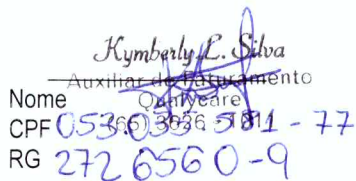 Kymberly L. Silva
Auxiliar de Faturamento
Nome
Qualycare
CPF 053.053.581-77
(66) 3026-1811
RG 2726560-9